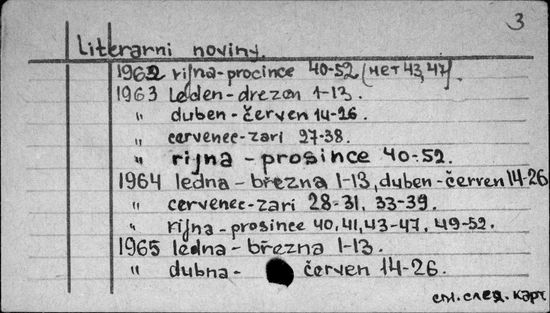 3
Literarni noviny.
1962 rijna-procince 40-52 (нет 43,47).
1963 leden-drezen 1-13.
" duben-červen 14-26.
" cervenec-zari 27-38.
" rijna - prosince 40-52.
1964 ledna-března 1-13, duben-červen 14-26
" cervenec-zari 28-31, 33-39.
" rijna-prosince 40,41,43-47, 49-52.
1965 ledna-března 1-13.
" dubna- červen 14-26.
см. след. карт.